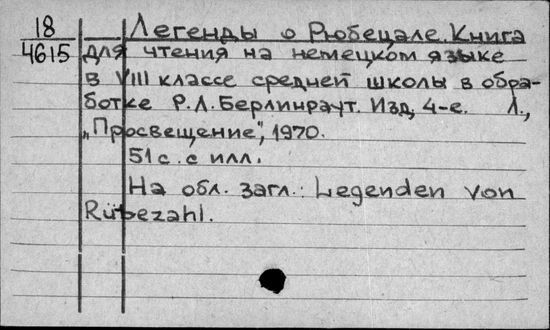 18
4615
Легенды о Рюбецале. Книга
для чтения на немецком языке
в VIII классе средней школы в обра-
ботке Р.Л. Берлинраут. Изд. 4-е. Л.,
„Просвещение", 1970.
51 с. с илл.
На обл. загл.: Legenden von
Rübezahl.